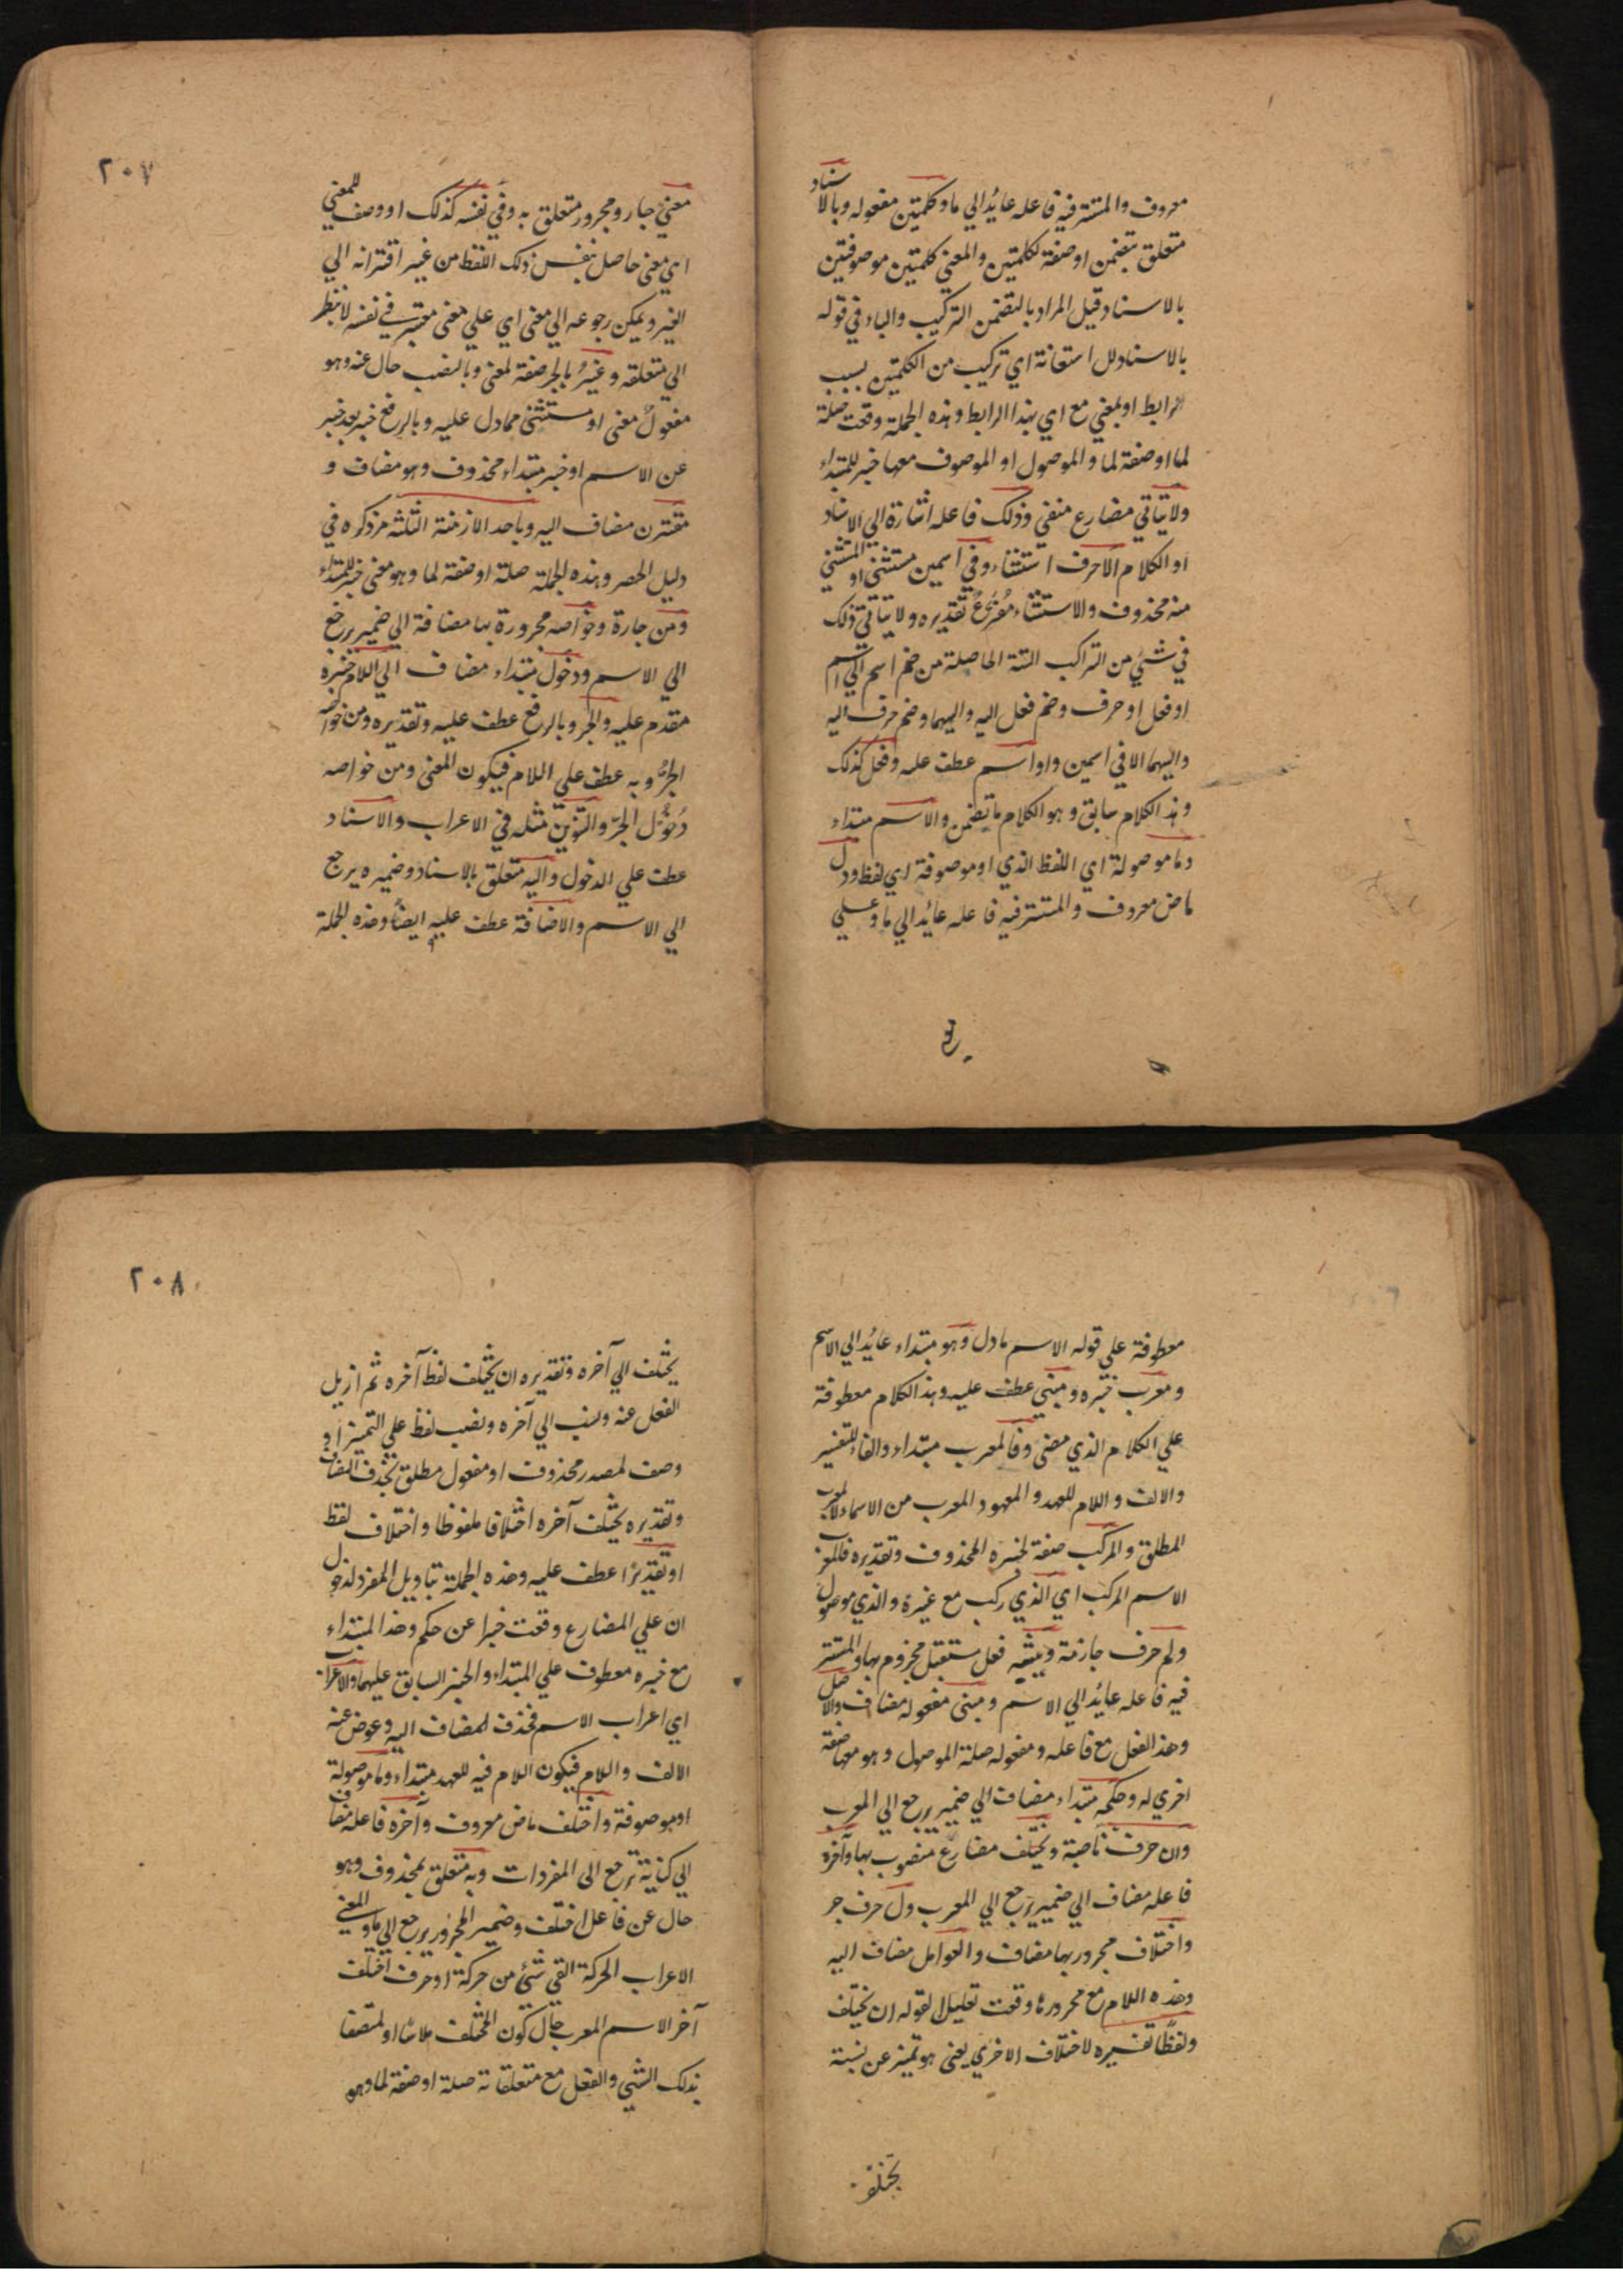 معروف والمستتر فيه فاعله عائد الي ما وكلمتين مفعوله وبالاسناد
متعلق بتضمن او صفة لكلمتين والمعني كلمتين موصوفتين
بالاسناد قيل المراد بالتضمن التركيب والباء في قوله
بالاسناد لل استعانة اي تركيب من الكلمتين بسبب
الرابط او بمعني مع اي بهذا الرابط وهذه الجملة وقعت صلة
لما او صفة لما والموصول او الموصوف معها خبر للمبتداء
ولا يتاتي مضارع منفي وذلك فاعله اشارة الي الاسناد
او الكلام الا حرف استثناء وفي اسمين مستثني او المستثني
منه محذوف والاستثناء مفرغ تقديره ولا يتاتي ذلك
في شئ من التراكيب الستة الحاصلة من ضم اسم الي اسم
او فعل او حرف وضم فعل اليه واليهما وضم حرف اليه
واليهما الا في اسمين واو اسم عطف عليه وفعل كذلك
وهذ الكلام سابق وهو الكلام ما تضمن والاسم مبتداء
وما موصولة اي اللفظ الذي او موصوفة اي لفظ ودل
ماض معروف والمستتر فيه فاعله عائد الي ما وعلي
٢٠٧
معني جار ومجرور متعلق به وفي نفسه كذلك او وصف للمعني
اي معني حاصل بنفس ذلك اللفظ من غير اقترانه الي
الغير ويمكن رجوعه الي معني اي علي معني معتبر في نفسه لا بنظر
الي متعلقه وغير بالجر صفة لمعني وبالنصب حال عنه وهو
مفعول معني او مستثني مما دل عليه وبالرفع خبر بعد خبر
عن الاسم او خبر مبتداء محذوف وهو مضاف و
مقترن مضاف اليه وباحد الازمنة الثلثة مر ذكره في
دليل الحصر وهذه الجملة صلة او صفة لما وهو معني خبر للمبتداء
ومن جارة وخواصه مجرورة بها مضافة الي ضمير يرجع
الي الاسم ودخول مبتداء مضاف الي اللام خبره
مقدم عليه والجر وبالرفع عطف عليه وتقديره ومن خواصه
الجر وبه عطف علي اللام فيكون المعني ومن خواصه
دخول الجر والتنوين مثله في الاعراب والاسناد
عطف علي الدخول واليه متعلق بالاسناد وضميره يرجع
الي الاسم والاضافة عطف عليه ايضا وهذه الجملة
معطوفة علي قوله الاسم ما دل وهو مبتداء عائد الي الاسم
ومعرب خبره ومبني عطف عليه وهذ الكلام معطوفة
علي الكلام الذي مضي وفالمعرب مبتداء والفاء للتفسير
والالف واللام للعهد والمعهود المعرب من الاسماء لا المعرب
المطلق والمركب صفة لخبره المحذوف وتقديره فالمعرب
الاسم المركب اي الذي ركب مع غيره والذي موصول
ولم حرف جازمة ويشبه فعل مستقبل مجزوم بها والمستتر
فيه فاعله عائد الي الاسم ومبني مفعوله مضاف والاصل
وهذ الفعل مع فاعله ومفعوله صلة الموصول وهو معها صفة
اخري له وحكمه مبتداء مضاف الي ضمير يرجع الي المعرب
وان حرف ناصبة ويختلف مضارع منصوب بها وآخره
فاعله مضاف الي ضمير يرجع الي المعرب ول حرف جر
واختلاف مجرور بها مضاف والعوامل مضاف اليه
وهذه اللام مع مجرورها وقعت تعليل لقوله ان يختلف
ولفظا تفسيره لاختلاف الاخري يعني هو تميز عن نسبة
يختلف
٢٠٨
يختلف الي آخره وتقديره ان يختلف لفظ آخره ثم ازيل
الفعل عنه ونسب الي آخره ونصب لفظ علي التميز او
وصف لمصدر محذوف او مفعول مطلق بحذف المضاف
وتقديره يختلف آخره اختلافا ملفوظا واختلاف لفظ
او تقديرا عطف عليه وهذه الجملة بتاويل المفرد لدخول
ان علي المضارع وقعت خبرا عن حكم وهذ المبتداء
مع خبره معطوف علي المبتداء والخبر السابق عليهما والاعراب
اي اعراب الاسم فحذف المضاف اليه وعوض عنه
الالف واللام فيكون اللام فيه للعهد مبتداء وما موصولة
او موصوفة واختلف ماض معروف وآخره فاعله مضاف
الي كناية ترجع الي المفردات وبه متعلق بمحذوف وهو
حال عن فاعل اختلف وضمير المجرور يرجع الي ما والمعني
الاعراب الحركة القي شئ من حركة او حرف اختلف
آخر الاسم المعرب حال كون المختلف ملابسا او متصفا
بذلك الشئ والفعل مع متعلقاته صلة او صفة لما وهو